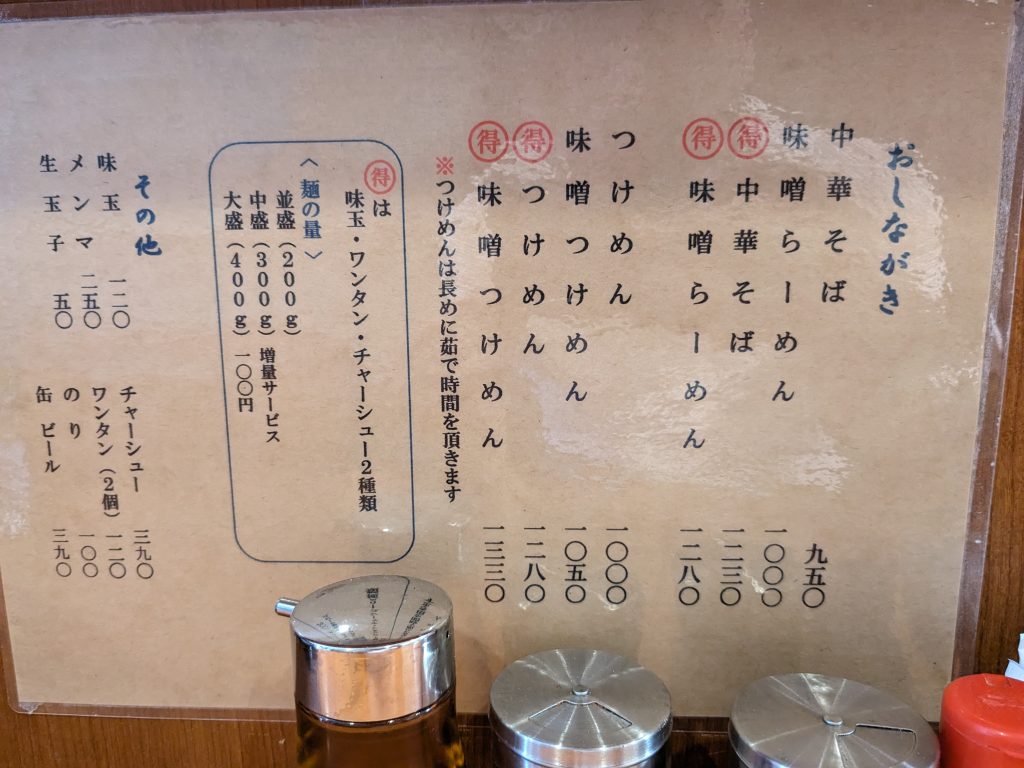 おしながき
中華そば 九五〇
味噌らーめん 一〇〇〇
得 中華そば 一二三〇
得 味噌らーめん 一二八〇
つけめん 一〇〇〇
味噌つけめん 一〇五〇
得 つけめん 一二八〇
得 味噌つけめん 一三三〇
※つけめんは長めに茹で時間を頂きます
得は
味玉・ワンタン・チャーシュー2種類
〈麺の量〉
並盛(200g)
中盛(300g)増量サービス
大盛(400g)一〇〇円
その他
味玉 一二〇
メンマ 二五〇
生玉子 五〇
チャーシュー 三九〇
ワンタン(2個) 一二〇
のり 一〇〇
缶ビール 三九〇